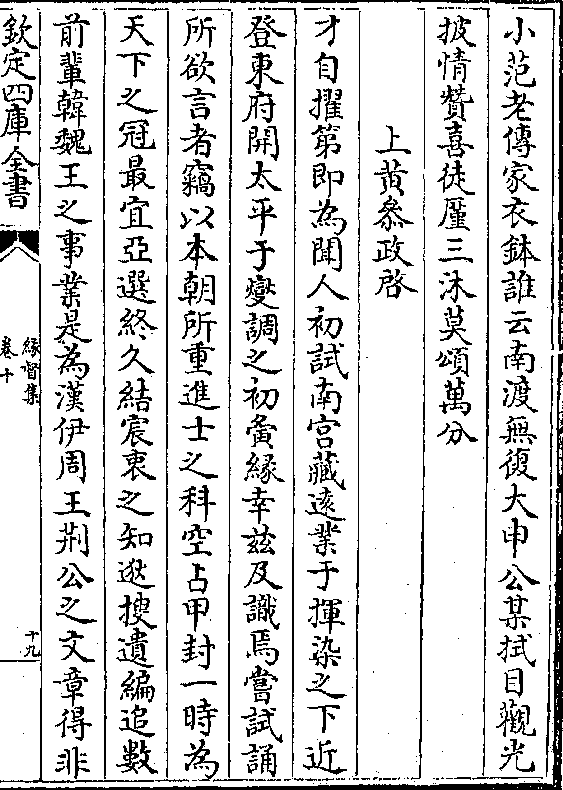 小范老傳家衣鉢誰云南渡無復大申公某拭目觀光
披情贊喜徒屢三沐莫頌萬分
上黄叅政啓
才自擢第即為聞人初試南宮藏逺業于揮染之下近
登東府開太平于燮調之初夤緣幸兹及識焉嘗試誦
所欲言者竊以本朝所重進士之科空占甲封一時為
天下之冠最宜亞選終久結宸衷之知逖搜遺編追數
前輩韓魏王之事業是為漢伊周王荆公之文章得非
欽定四庫全書
緣督集
卷十
十九